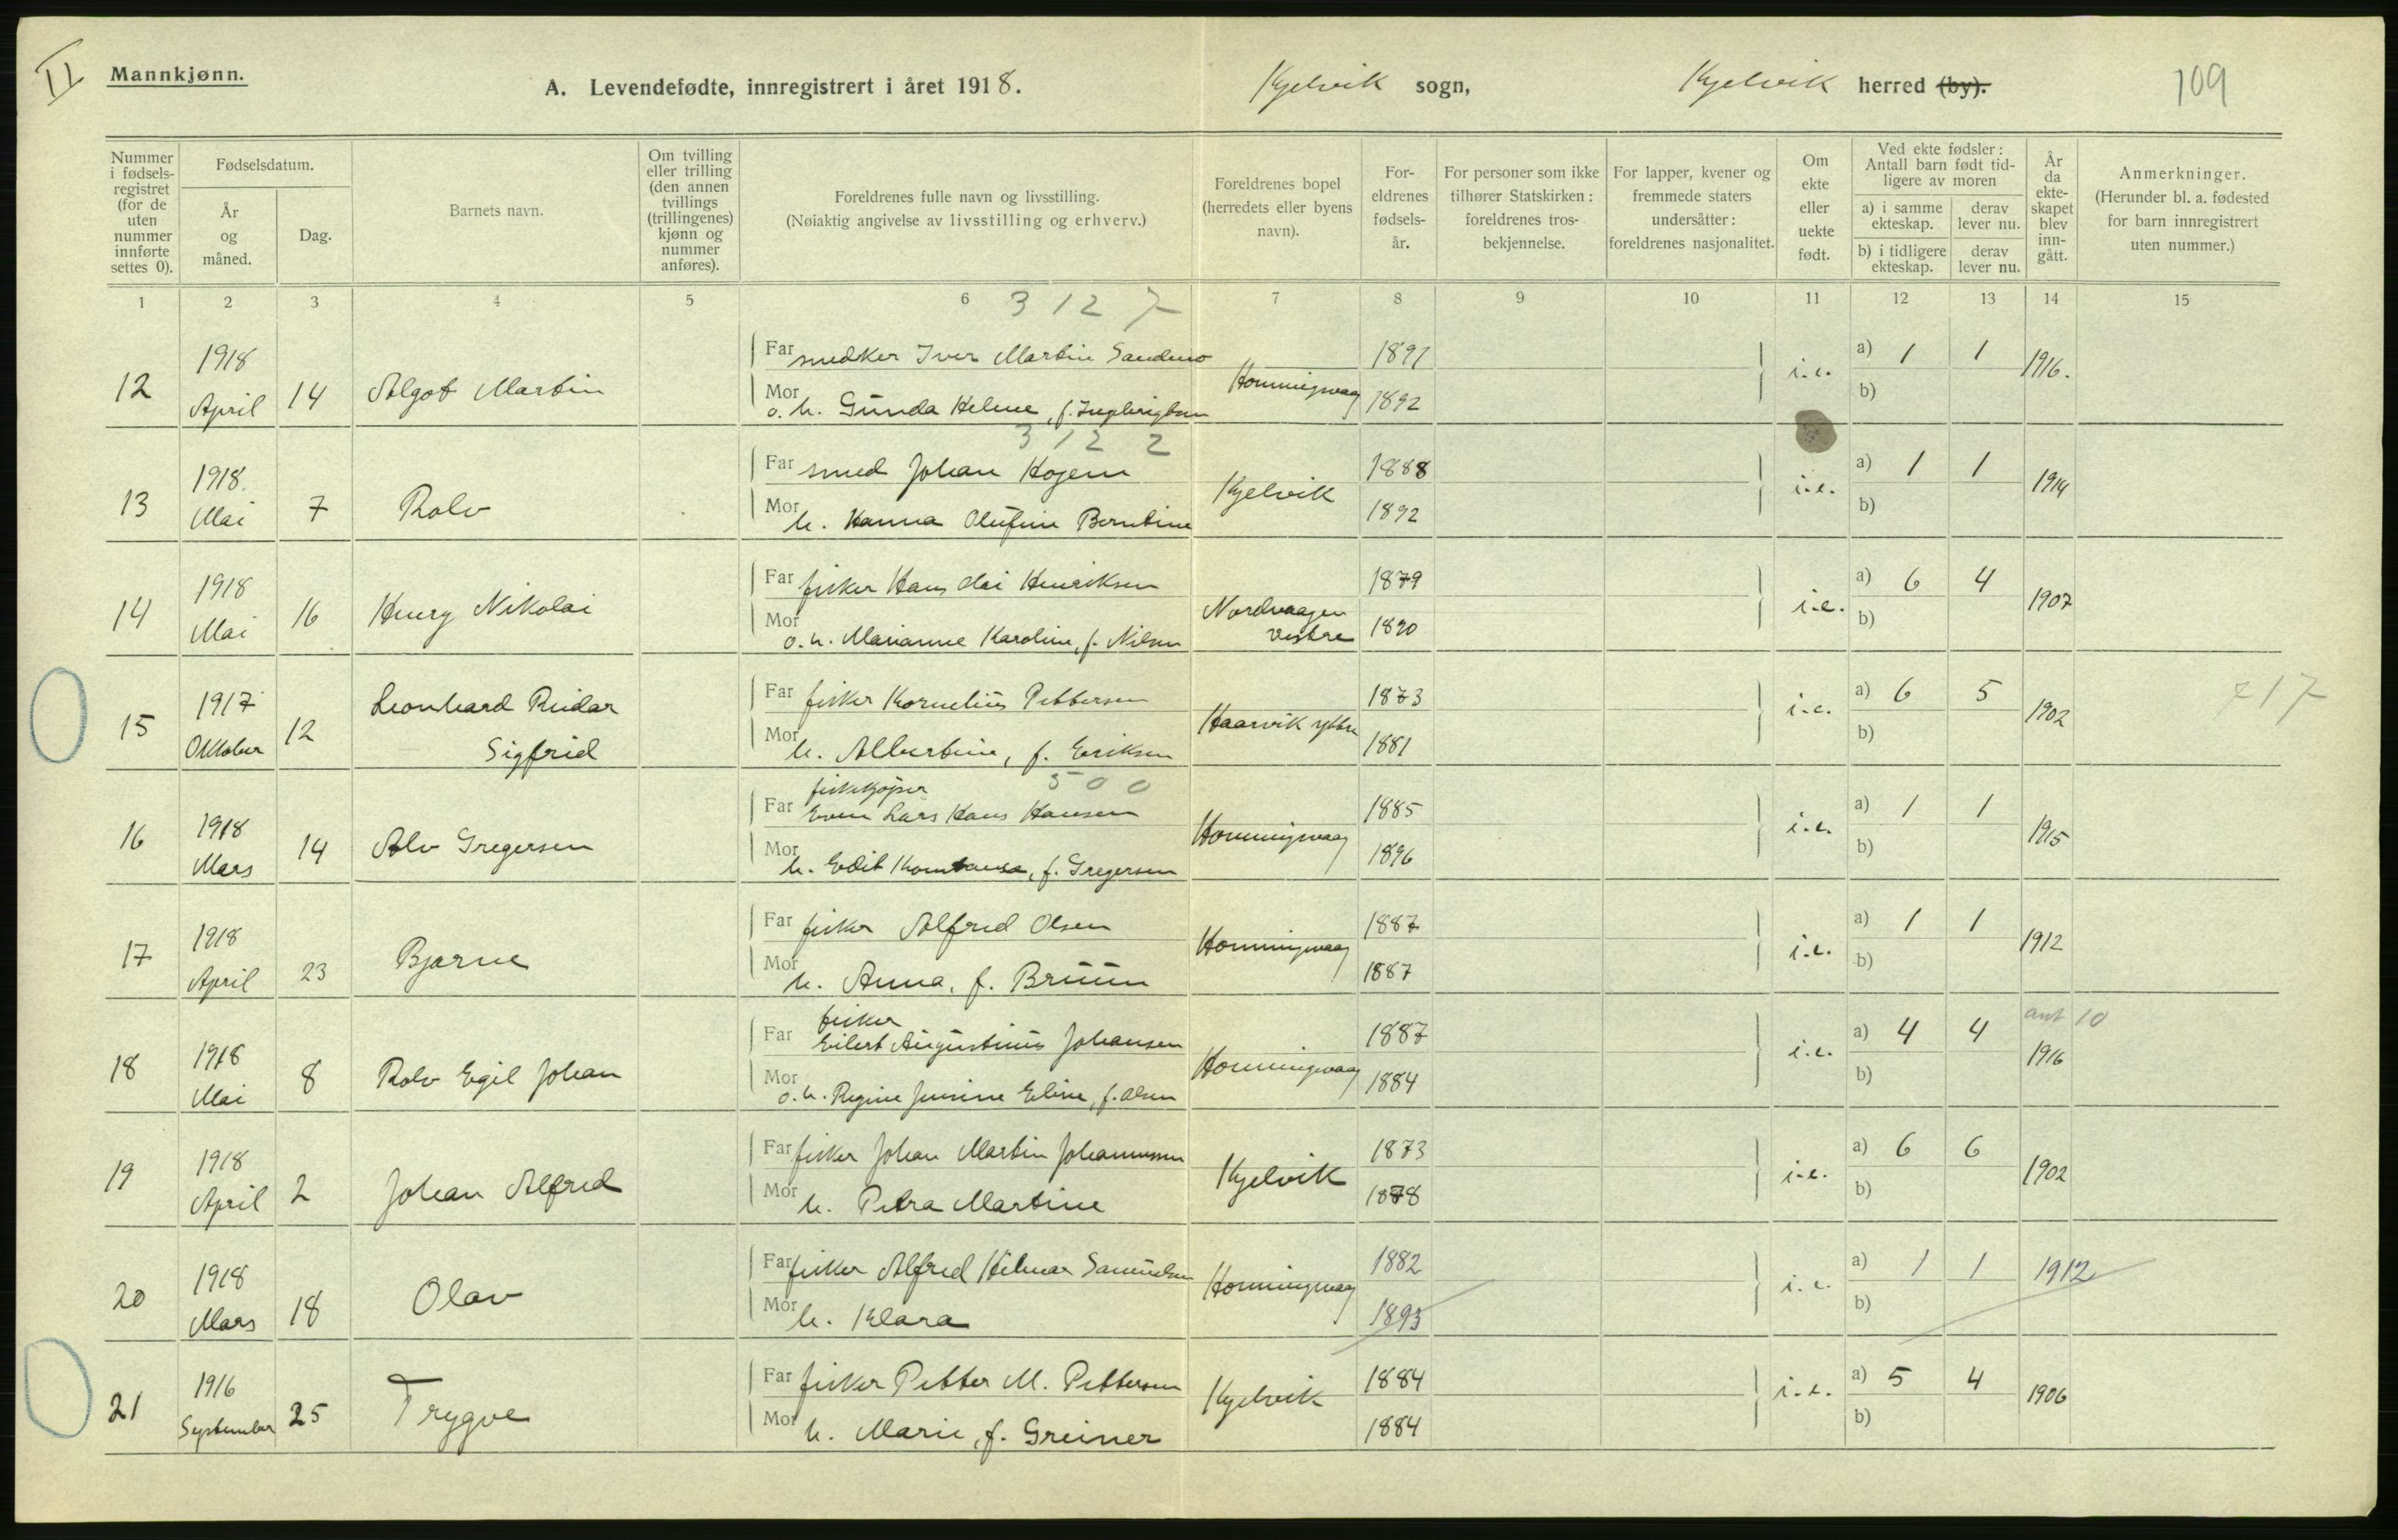 II
Mannkjønn.
A. Levendefødte, innregistrert i året 1918.
Kjelvik sogn,
Kjelvik herred (by).
109
Nummer i fødselsregistret (for de uten nummer innførte settes 0).
Fødselsdatum.
År og måned.
Dag.
Barnets navn.
Om tvilling eller trilling (den annen tvillings (trillingenes) kjønn og nummer anføres).
Foreldrenes fulle navn og livsstilling.
(Nøiaktig angivelse av livsstilling og erhverv.)
Foreldrenes bopel (herredets eller byens navn).
Foreldrenes fødselsår.
For personer som ikke tilhører Statskirken: foreldrenes trosbekjennelse.
For lapper, kvener og fremmede staters undersåtter: foreldrenes nasjonalitet.
Om ekte eller uekte født.
Ved ekte fødsler: Antall barn født tidligere av moren
a) i samme ekteskap.
derav lever nu.
b) i tidligere ekteskap.
derav lever nu.
År da ekteskapet blev inngått.
Anmerkninger.
(Herunder bl. a. fødested for barn innregistrert uten nummer.)
1 2 3 4 5 6 7 8 9 10 11 12 13 14 15
3 12 7
12 1918 April 14 Algot Martin
Far snedker Iver Martin Sandmo 1891
Mor o. h. Gunda Helene, f. Honningvaag 1892
i.e. a) 1 1 1916.
b)
3 12 2
13 1918. Mai 7 Rolv
Far smed Johan Kogem 1888
Mor h. Hanna Olufine Berntine Kjelvik 1892
i.e. a) 1 1 1914
b)
14 1918 Mai 16 Henry Nikolai
Far fisker Hans Henriksen 1879
Mor o. h. Marianne Karoline, f. Nilsen Nordvaagen vestre 1890
i.e. a) 6 4 1907
b)
15 1917 Oktober 12 Leonhard Reidar Sigfrid
Far fisker Kornelius Pettersen 1873
Mor h. Albertine, f. Eriksen Haarvik yttre 1881
i.e. a) 6 5 1902
b)
17
500
16 1918 Mars 14 Alv Gregersen
Far fiskekjøper Even Lars Hans Hansen 1885
Mor h. Edit Konstanse, f. Gregersen Honningvaag 1896
i.e. a) 1 1 1915
b)
17 1918 April 23 Bjarne
Far fisker Alfred Olsen 1887
Mor h. Anna, f. Bruun Honningvaag 1887
i.e. a) 1 1 1912
b)
18 1918 Mai 8 Rolv Egil Johan
Far fisker Eilert Augustinus Johansen 1887
Mor o. h. Regine Jensine Eline, f. Olsen Honningvaag 1884
i.e. a) 4 4 ant 10 1916
b)
19 1918 April 2 Johan Alfred
Far fisker Johan Martin Johannessen 1873
Mor h. Petra Martine Kjelvik 1878
i.e. a) 6 6 1902
b)
20 1918 Mars 18 Olav
Far fisker Alfred Hilmar Samuelsen 1882
Mor h. Klara Honningvaag 1893
i.e. a) 1 1 1912
b)
21 1916 September 25 Trygve
Far fisker Petter M. Pettersen 1884
Mor h. Marie, f. Greiner Kjelvik 1884
i.e. a) 5 4 1906
b)